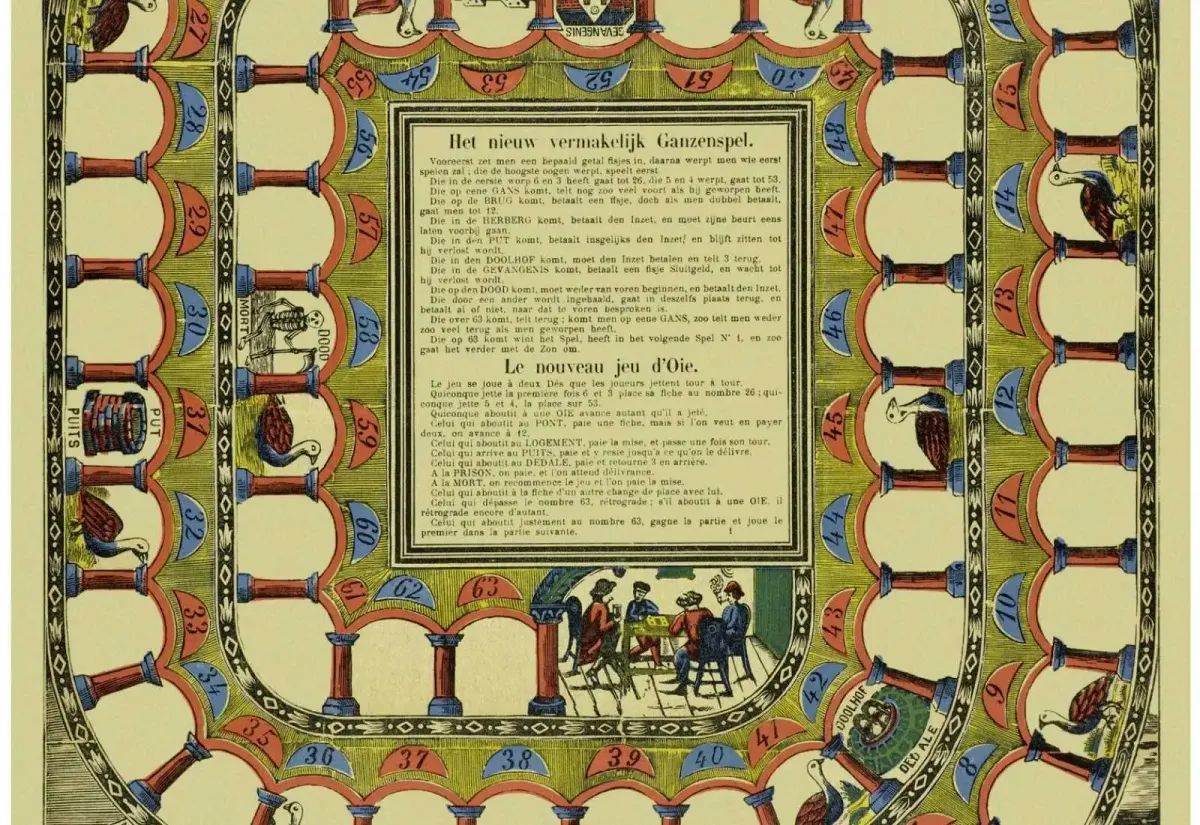 GEVANGENIS
Het nieuw vermakelijk Ganzenspel.
Vooreerst zet men een bepaald getal fisjes in, daarna werpt men wie eerst
spelen zal ; die de hoogste oogen werpt, speelt eerst.
Die in de eerste worp 6 en 3 heeft gaat tot 26, die 5 en 4 werpt, gaat tot 53.
Die op eene GANS komt, telt nog zoo veel voort als hij geworpen heeft.
Die op de BRUG komt, betaalt een fisje, doch als men dubbel betaalt,
gaat men tot 12.
Die in de HERBERG komt, betaalt den Inzet, en moet zijne beurt eens
laten voorbij gaan.
Die in den PUT komt, betaalt insgelijks den Inzet, en blijft zitten tot
hij verlost wordt.
Die in den DOOLHOF komt, moet den Inzet betalen en telt 3 terug.
Die in de GEVANGENIS komt, betaalt een fisje Sluitgeld, en wacht tot
hij verlost wordt.
Die op den DOOD komt, moet weder van voren beginnen, en betaalt den Inzet.
Die door een ander wordt ingehaald, gaat in deszelfs plaats terug, en
betaalt al of niet, naar dat te voren besproken is.
Die over 63 komt, telt terug ; komt men op eene GANS, zoo telt men weder
zoo veel terug als men geworpen heeft.
Die op 63 komt wint het Spel, heeft in het volgende Spel N° 1, en zoo
gaat het verder met de Zon om.
Le nouveau jeu d'Oie.
Le jeu se joue à deux Dés que les joueurs jettent tour à tour.
Quiconque jette la première fois 6 et 3 place sa fiche au nombre 26 ; qui-
conque jette 5 et 4, la place sur 53.
Quiconque aboutit à une OIE avance autant qu'il a jeté.
Celui qui aboutit au PONT, paie une fiche, mais si l'on veut en payer
deux, on avance à 12.
Celui qui aboutit au LOGEMENT, paie la mise, et passe une fois son tour.
Celui qui arrive au PUITS, paie et y reste jusqu'a ce qu'on le délivre.
Celui qui aboutit au DEDALE, paie et retourne 3 en arrière.
A la PRISON, on paie, et l'on attend délivrance.
A la MORT, on recommence le jeu et l'on paie la mise.
Celui qui aboutit à la fiche d'un autre change de place avec lui.
Celui qui dépasse le nombre 63, rétrograde ; s'il aboutit à une OIE, il
rétrograde encore d'autant.
Celui qui aboutit justement au nombre 63, gagne la partie et joue le
premier dans la partie suivante. 1
8
9
10
11
12
13
14
15
16
27
28
29
30
31
PUITS
PUT
32
33
34
35
36
37
38
39
40
41
42
DOOLHOF
DEDALE
43
44
45
46
47
48
49
50
51
52
53
54
55
56
57
58
MORT
DOOD
59
60
61
62
63